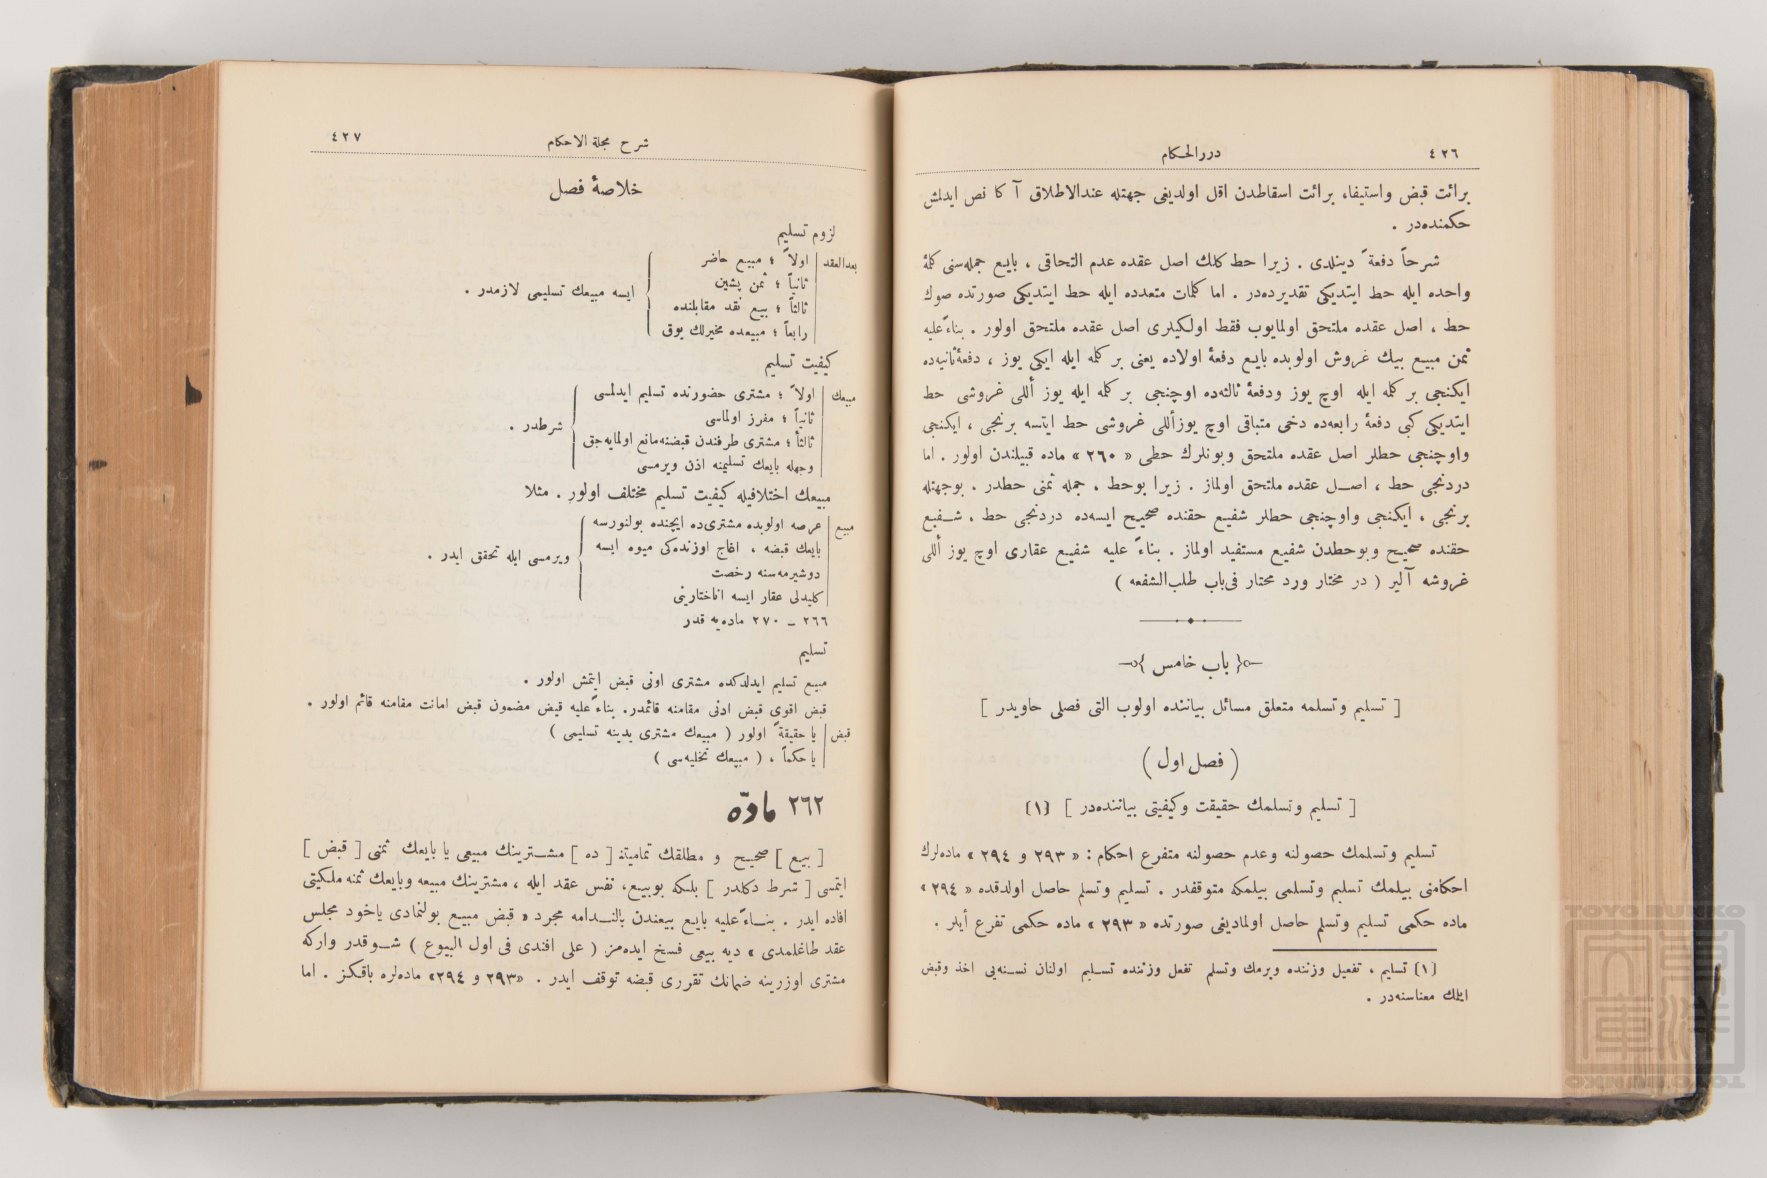 ٤٢٦
دررالحكام
برائت قبض واستيفا، برائت اسقاطدن اقل اولديغى جهتله عندالاطلاق آ كا نص ايدلمش
حكمنده‌در .
شرحاً دفعةً دينلدى . زيرا حط كلك اصل عقده عدم التحاقى ، بايع جمله‌سنى كلمهٔ
واحده ايله حط ايتديكى تقديرده‌در . اما كلمات متعدده ايله حط ايتديكى صورتده صوك
حط ، اصل عقده ملتحق اولمايوب فقط اولكيلرى اصل عقده ملتحق اولور . بناءً عليه
ثمن مبيع بيك غروش اولوبده بايع دفعهٔ اولاده يعنى بر كلمه ايله ايكى يوز ، دفعهٔ ثانيه‌ده
ايكنجى بر كلمه ايله اوچ يوز ودفعهٔ ثالثه‌ده اوچنجى بر كلمه ايله يوز أللى غروشى حط
ايتديكى كبى دفعهٔ رابعه‌ده دخى متباقى اوچ يوزأللى غروشى حط ايتسه برنجى ، ايكنجى
واوچنجى حطلر اصل عقده ملتحق وبونلرك حطى « ٢٦٠ » ماده قبيلندن اولور . اما
دردنجى حط ، اصل عقده ملتحق اولماز . زيرا بوحط ، جمله ثمنى حطدر . بوجهتله
برنجى ، ايكنجى واوچنجى حطلر شفيع حقنده صحيح ايسه‌ده دردنجى حط ، شفيع
حقنده صحيح وبوحطدن شفيع مستفيد اولماز . بناءً عليه شفيع عقارى اوچ يوز أللى
غروشه آلير ( در مختار ورد محتار فى‌باب طلب‌الشفعه )
﴿ باب خامس ﴾
[ تسليم وتسلمه متعلق مسائل بياننده اولوب التى فصلى حاويدر ]
( فصل اول )
[ تسليم وتسلمك حقيقت وكيفيتى بياننده‌در ] {١}
تسليم وتسلمك حصولنه وعدم حصولنه متفرع احكام : « ٢٩٣ و ٢٩٤ » ماده‌لرك
احكامنى بيلمك تسليم وتسلمى بيلمكه متوقفدر . تسليم وتسلم حاصل اولدقده « ٢٩٤ »
ماده حكمى تسليم وتسلم حاصل اولماديغى صورتده « ٢٩٣ » ماده حكمى تفرع ايلر .
{١} تسليم ، تفعيل وزننده ويرمك وتسلم تفعل وزننده تسليم اولنان نسنه‌يى اخذ وقبض
ايلمك معناسنه‌در .
شرح مجلة الاحكام
٤٢٧
خلاصهٔ فصل
لزوم تسليم
بعدالعقد
اولاً ؛ مبيع حاضر
ثانياً ؛ ثمن پشين
ثالثاً ؛ بيع نقد مقابلنده
رابعاً ؛ مبيعده مخيرلك يوق
ايسه مبيعك تسليمى لازمدر .
كيفيت تسليم
مبيعك
اولاً ؛ مشترى حضورنده تسليم ايدلمسى
ثانياً ؛ مفرز اولماسى
ثالثاً ؛ مشترى طرفندن قبضنه‌مانع اولمايه‌جق
وجهله بايعك تسليمنه اذن ويرمسى
شرطدر .
مبيعك اختلافيله كيفيت تسليم مختلف اولور . مثلا
مبيع
عرصه اولوبده مشترى‌ده ايچنده بولنورسه
بايعك قبضه ، اغاج اوزنده‌كى ميوه ايسه
دوشيرمه‌سنه رخصت
كليدلى عقار ايسه اناختارينى
ويرمسى ايله تحقق ايدر .
٢٦٦ ـ ٢٧٠ ماده‌يه قدر
تسليم
مبيع تسليم ايدلدكده مشترى اونى قبض ايتمش اولور .
قبض اقوى قبض ادنى مقامنه قائمدر. بناءً عليه قبض مضمون قبض امانت مقامنه قائم اولور .
قبض
يا حقيقةً اولور ( مبيعك مشترى يدينه تسليمى )
يا حكماً ، ( مبيعك تخليه‌سى )
٢٦٢ مادّه
[ بيع ] صحيح و مطلقك تماميتنـ [ ده ] مشترينك مبيعى يا بايعك ثمنى [ قبض ]
ايتمسى [ شرط دكلدر ] بلكه بوبيع، نفس عقد ايله ، مشترينك مبيعه وبايعك ثمنه ملكيتى
افاده ايدر . بناءً عليه بايع بيعندن بالندامه مجرد « قبض مبيع بولنمادى ياخود مجلس
عقد طاغلمدى » ديه بيعى فسخ ايده‌مز ( على افندى فى اول البيوع ) شوقدر واركه
مشترى اوزرينه ضمانك تقررى قبضه توقف ايدر . «٢٩٣ و ٢٩٤» ماده‌لره باقكز . اما
TOYO BUNKO